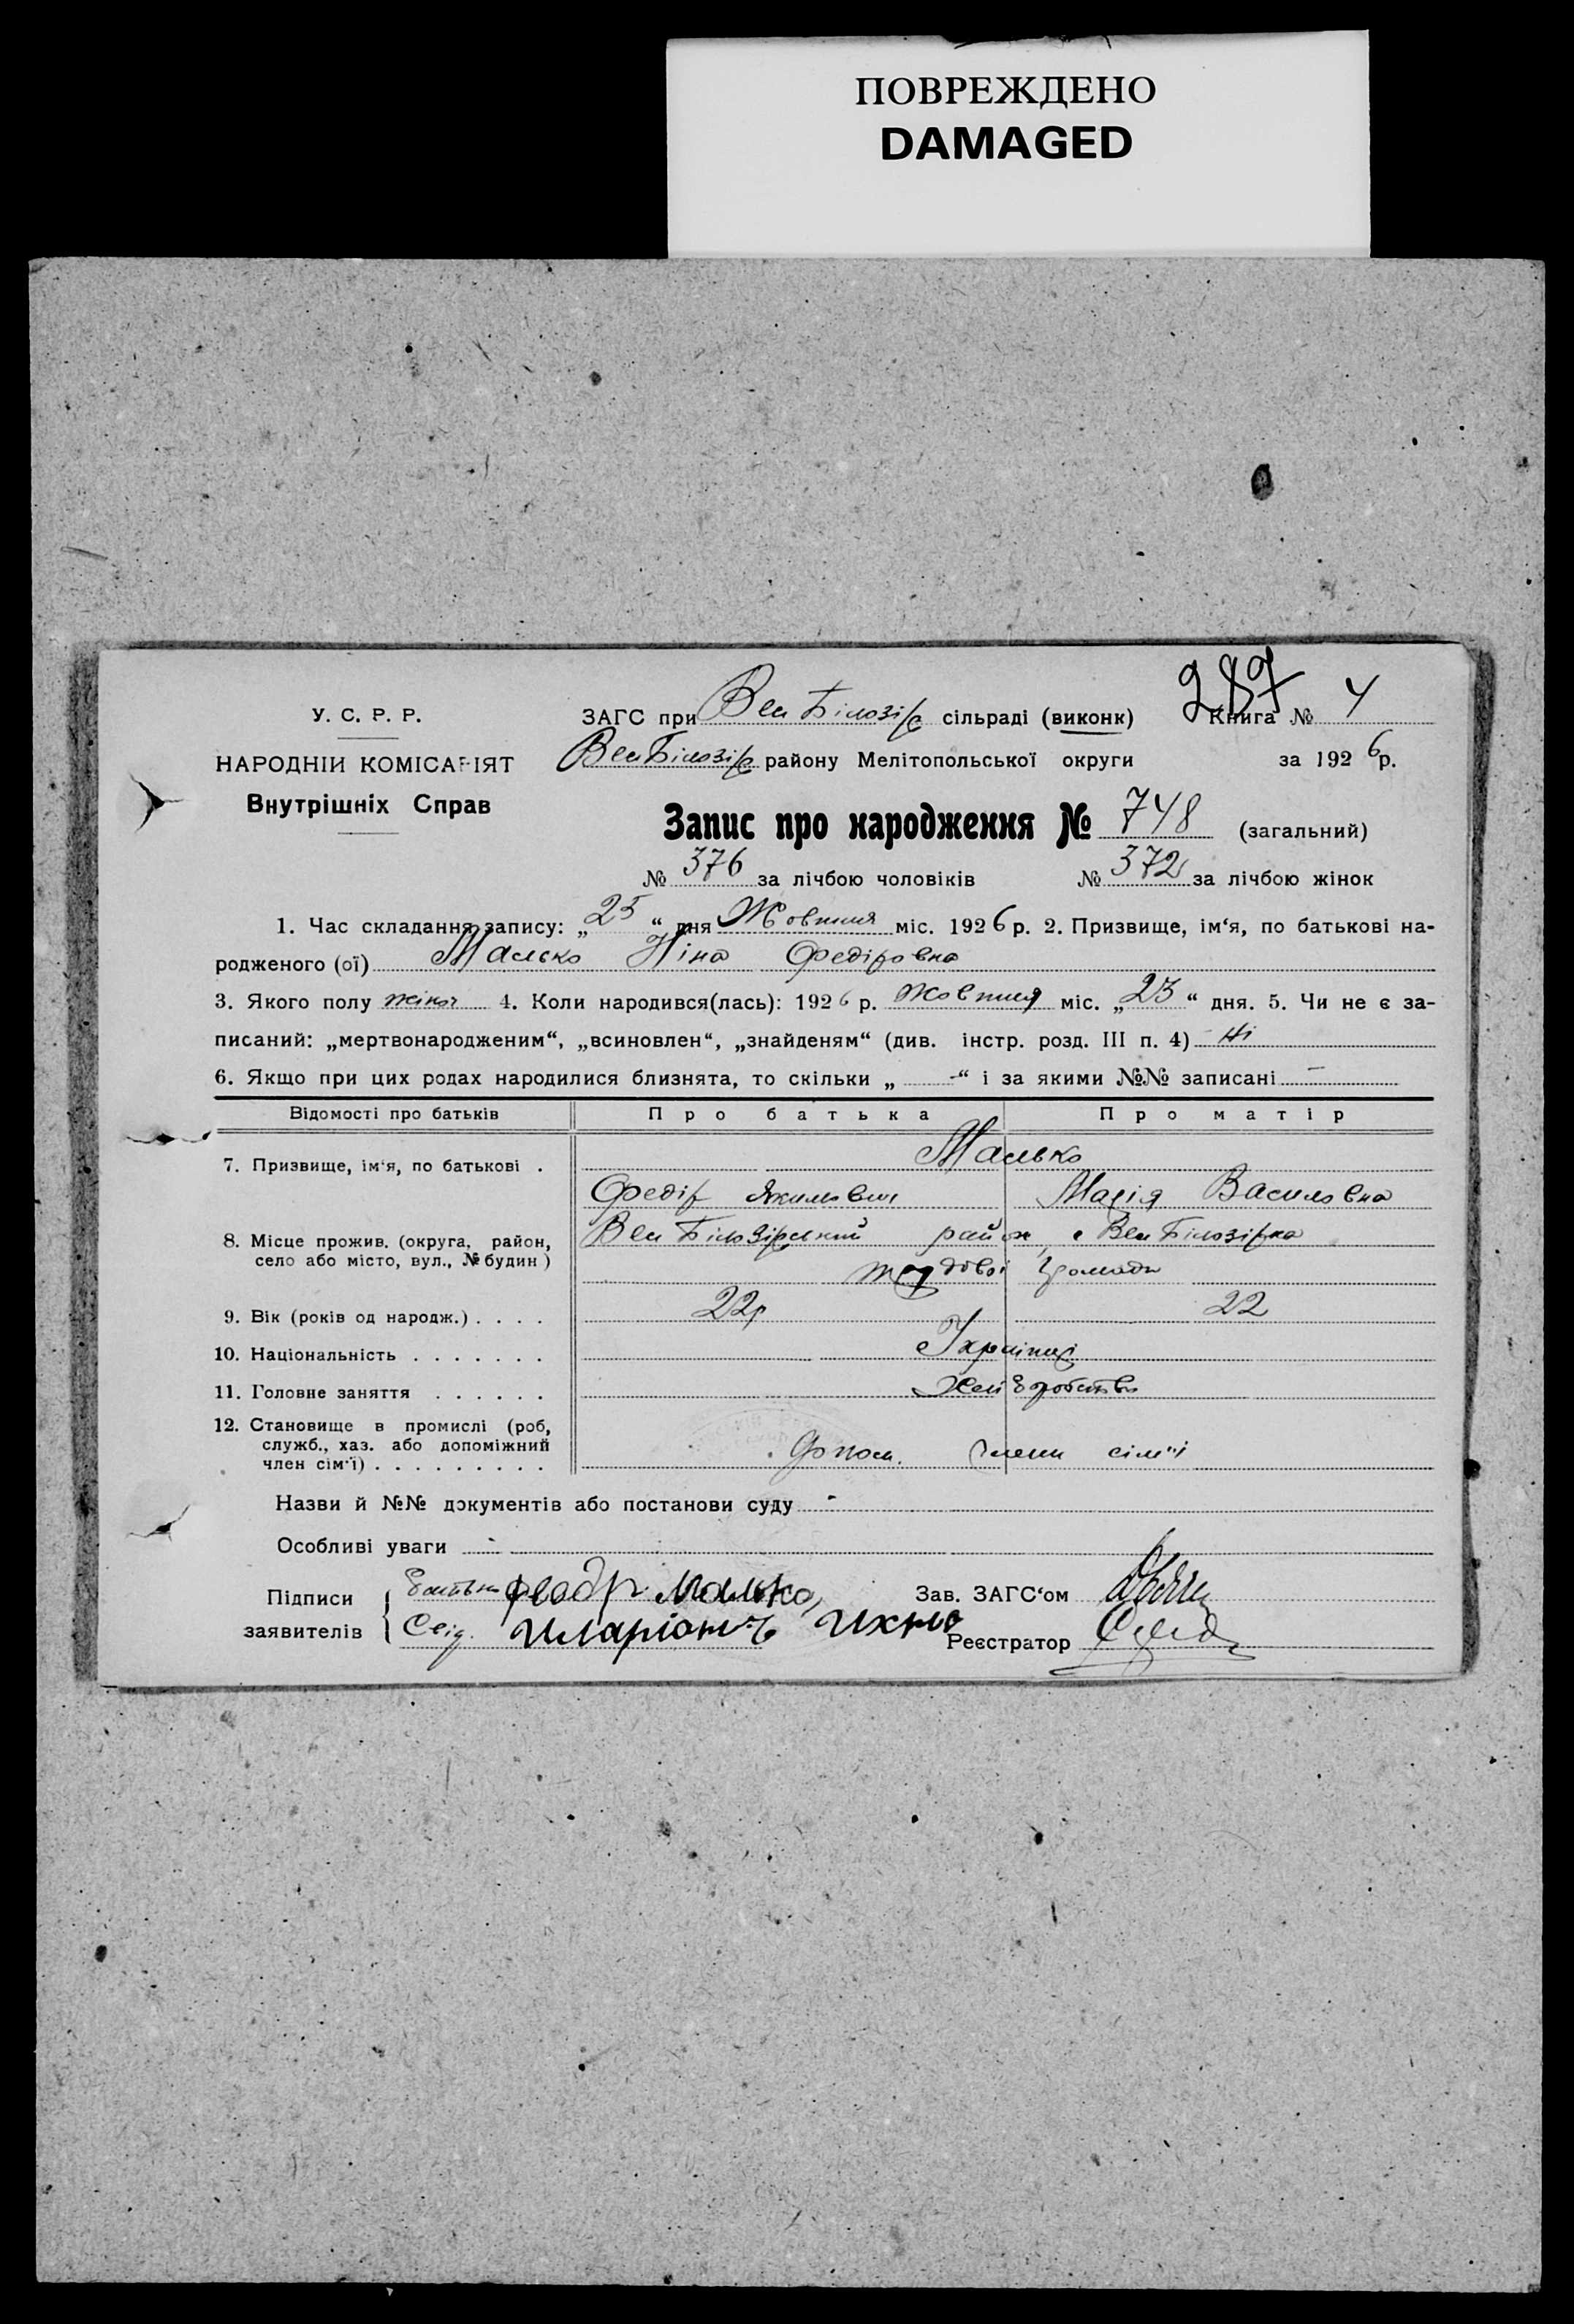 ПОВРЕЖДЕНО
DAMAGED
287
У. С. Р. Р.
ЗАГС при Вел Білозір сільраді (виконк) Книга № 4
НАРОДНІЙ КОМІСАРІЯТ
Вел Білозір району Мелітопольської округи за 1926 р.
Внутрішніх Справ
Запис про народження № 748 (загальний)
№ 376 за лічбою чоловіків № 372 за лічбою жінок
1. Час складання запису: „25“ дня Жовтня міс. 1926 р. 2. Призвище, ім‘я, по батькові на-
родженого (ої) Малько Ніна Федіровна
3. Якого полу жіноч 4. Коли народився(лась): 1926 р. Жовтня міс. „23“ дня. 5. Чи не є за-
писаний: „мертвонародженим“, „всиновлен“, „знайденям“ (див. інстр. розд. III п. 4) Ні
6. Якщо при цих родах народилися близнята, то скільки „ - “ і за якими №№ записані -
Відомості про батьків Про батька Про матір
7. Призвище, ім‘я, по батькові . Малько
Федір Якимович Марія Василовна
8. Місце прожив. (округа, район, село або місто, вул., № будин) Вел Білозірський район, с Вел Білозірка
трудової громади
9. Вік (років од народж.) . . . . 22р 22
10. Національність . . . . . . . Українці
11. Головне заняття . . . . . . Хліборобство
12. Становище в промислі (роб,
служб., хаз. або допоміжний
член сім‘ї) . . . . . . . . . Допом. члени сім'ї
Назви й №№ документів або постанови суду -
Особливі уваги -
Підписи батько Феодр Малько Зав. ЗАГС‘ом
заявителів Свід. Иларіонъ Ихно Реєстратор